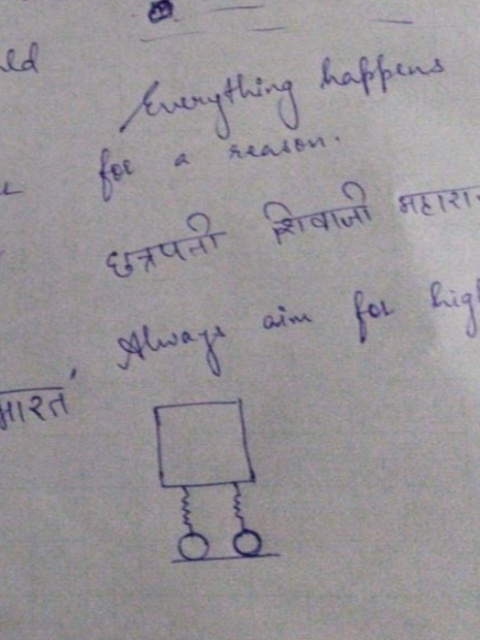 Everything happens
for a reason.
छत्रपती शिवाजी
Always aim for
भारत